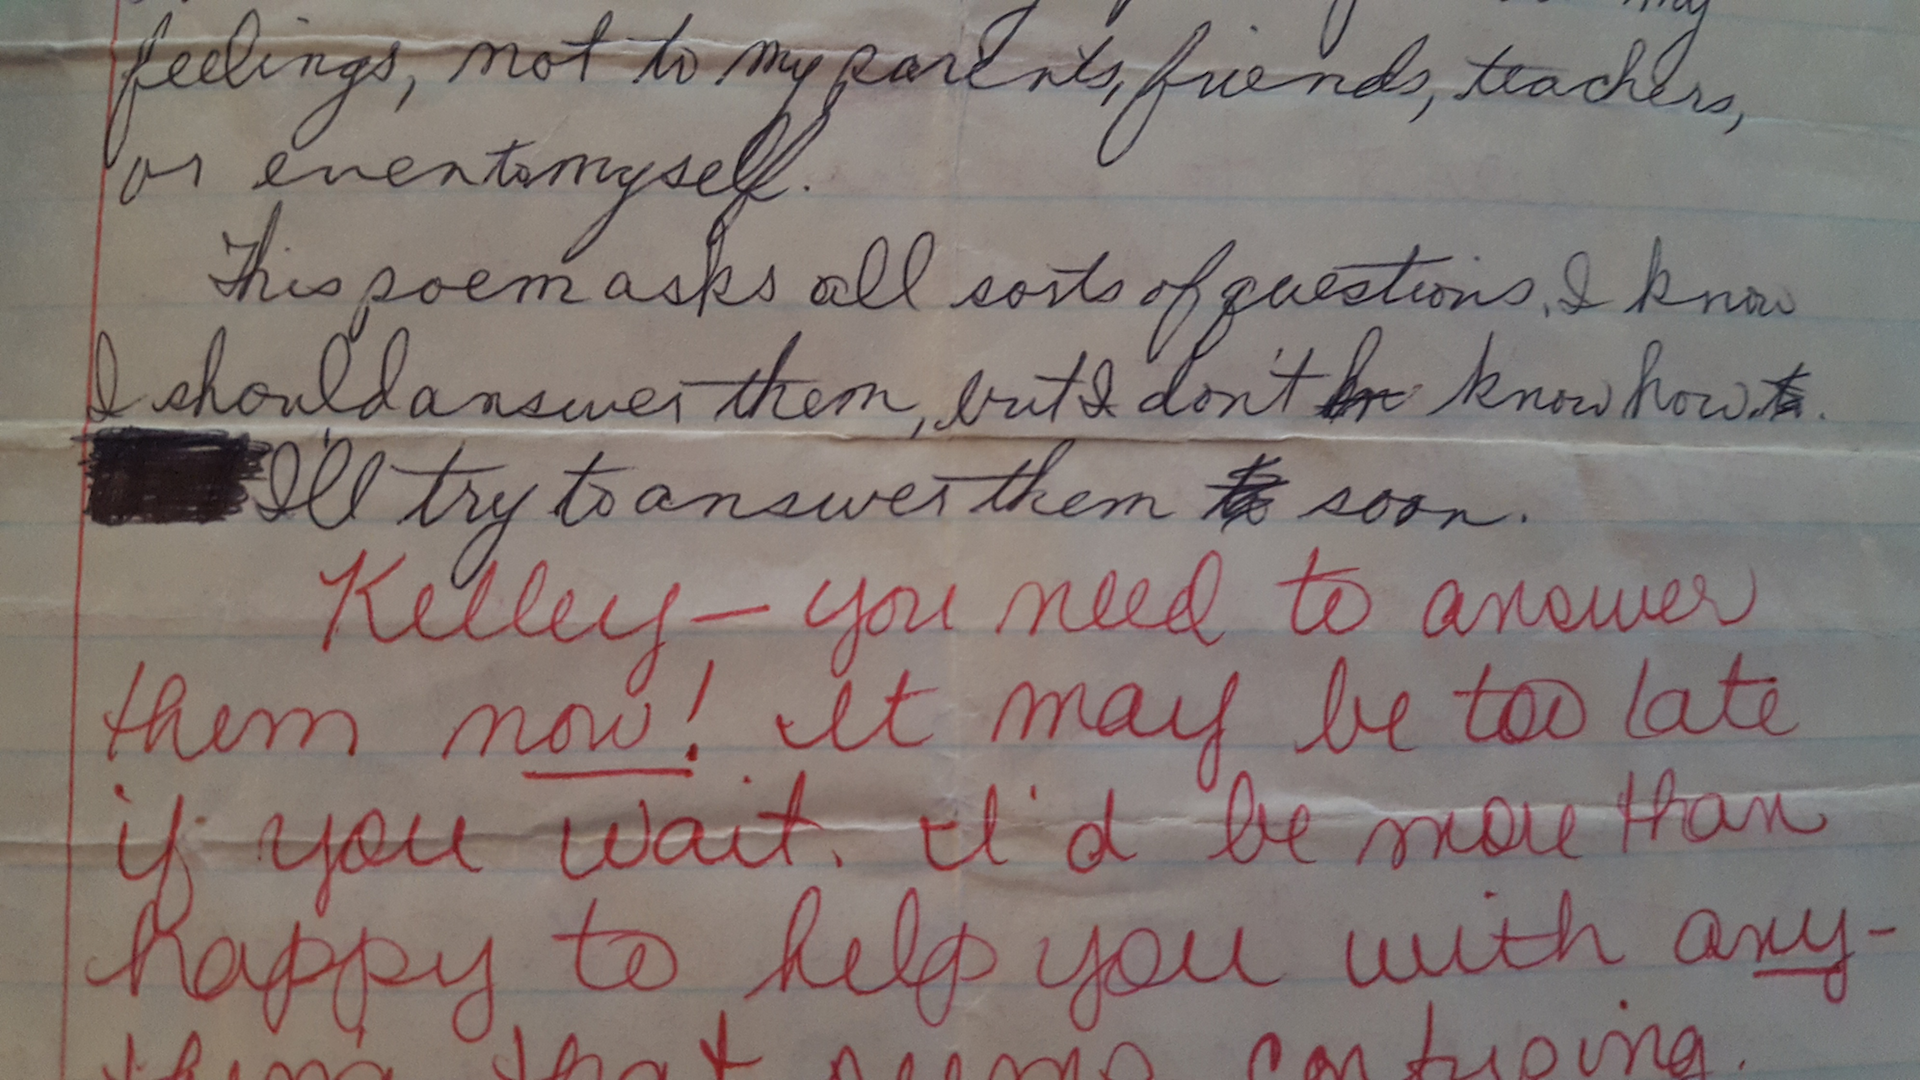 my
feelings, not to my parents, friends, teachers,
or even to myself.
This poem asks all sorts of questions. I know
I should answer them, but I don't know how.
I'll try to answer them soon.
Kelley – you need to answer
them now! It may be too late
if you wait. I'd be more than
happy to help you with any-
thing that seems confusing.